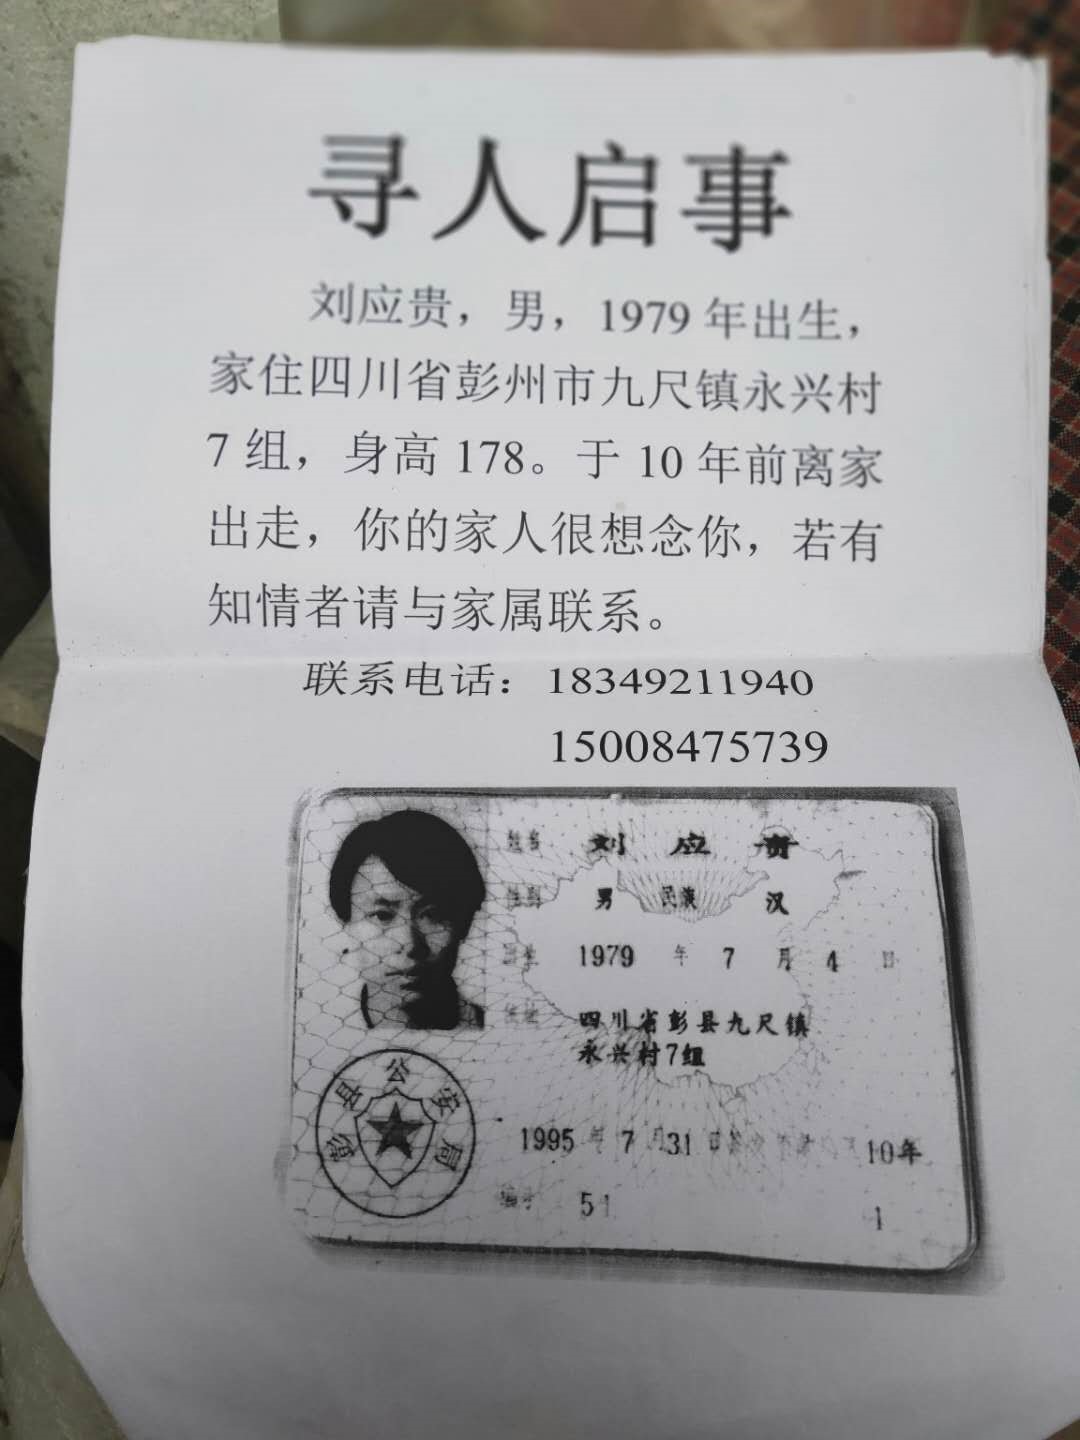 寻人启事
刘应贵，男，1979年出生，
家住四川省彭州市九尺镇永兴村
7组，身高178。于10年前离家
出走，你的家人很想念你，若有
知情者请与家属联系。
联系电话：18349211940
15008475739
姓名 刘应贵
性别 男 民族 汉
出生 1979年7月4日
住址 四川省彭县九尺镇
永兴村7组
1995年7月31日 10年
编号 51 1
彭县公安局